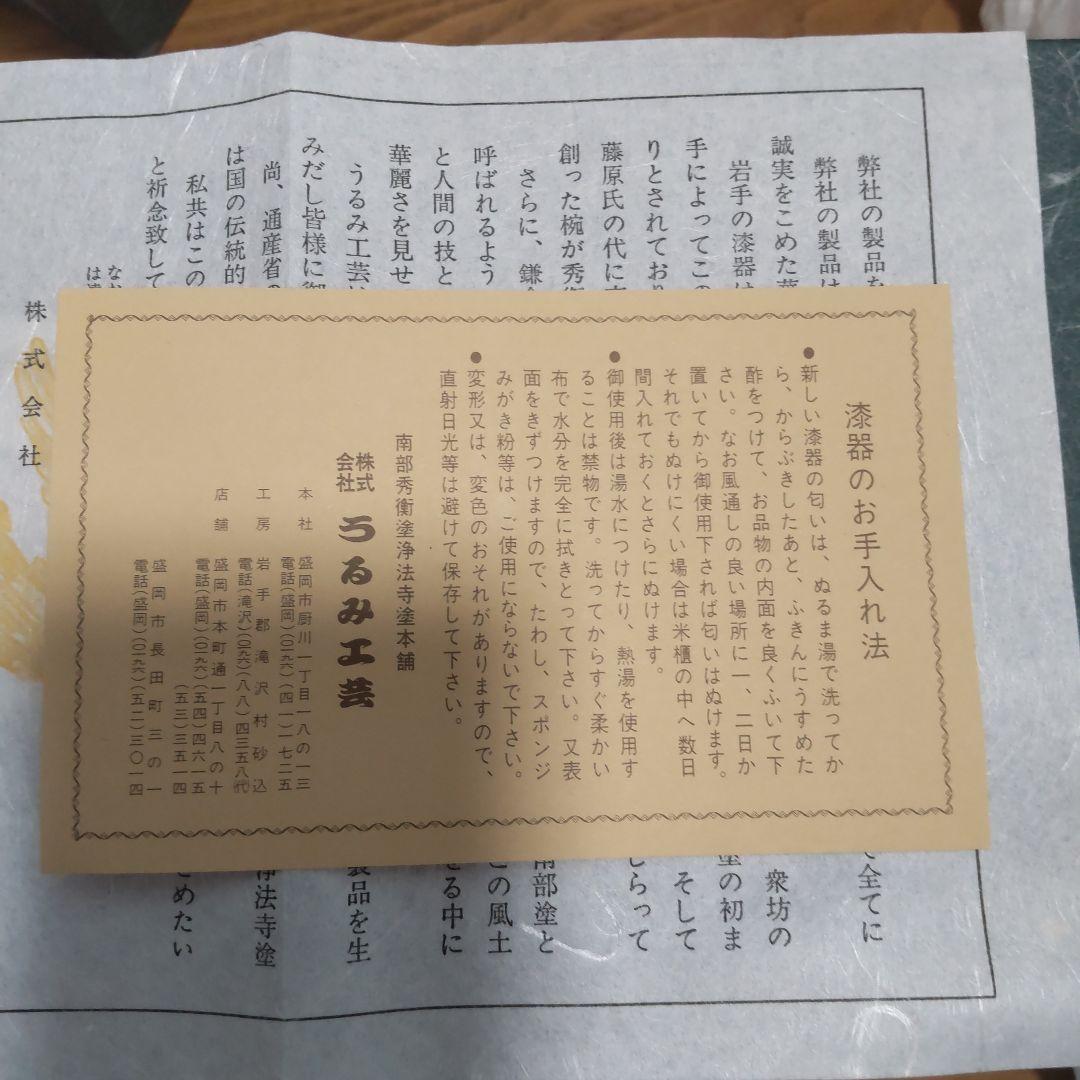 漆器のお手入れ法
●新しい漆器の匂いは、ぬるま湯で洗ってか
ら、からぶきしたあと、ふきんにうすめた
酢をつけて、お品物の内面を良くふいて下
さい。なお風通しの良い場所に一、二日か
置いてから御使用下されば匂いはぬけます。
それでもぬけにくい場合は米櫃の中へ数日
間入れておくとさらにぬけます。
●御使用後は湯水につけたり、熱湯を使用す
ることは禁物です。洗ってからすぐ柔かい
布で水分を完全に拭きとって下さい。又表
面をきずつけますので、たわし、スポンジ
みがき粉等は、ご使用にならないで下さい。
●変形又は、変色のおそれがありますので、
直射日光等は避けて保存して下さい。
南部秀衡塗浄法寺塗本舗
株式会社 うるみ工芸
本社 盛岡市厨川一丁目一八の一三
電話(盛岡)(〇一九六)(四一)一七二五
工房 岩手郡滝沢村砂込
電話(滝沢)(〇一九六)(八八)四三五八㈹
店舗 盛岡市本町通一丁目八の十
電話(盛岡)(〇一九六)(五四)四六一五
(五三)三五一四
盛岡市長田町三の一
電話(盛岡)(〇一九六)(五二)三〇一四
弊社の製品を
て全てに
弊社の製品は
誠実をこめた
衆坊の
岩手の漆器は
塗の初ま
手によってこの
そして
りとされており
しらって
藤原氏の代に
創った椀が秀衡
南部塗と
さらに、鎌倉
この風土
呼ばれるよう
せる中に
と人間の技と
華麗さを見せ
製品を生
うるみ工芸は
みだし皆様に御
浄法寺塗
尚、通産省の
は国の伝統的
とめたい
私共はこの
と祈念致して
なお
は
株式会社